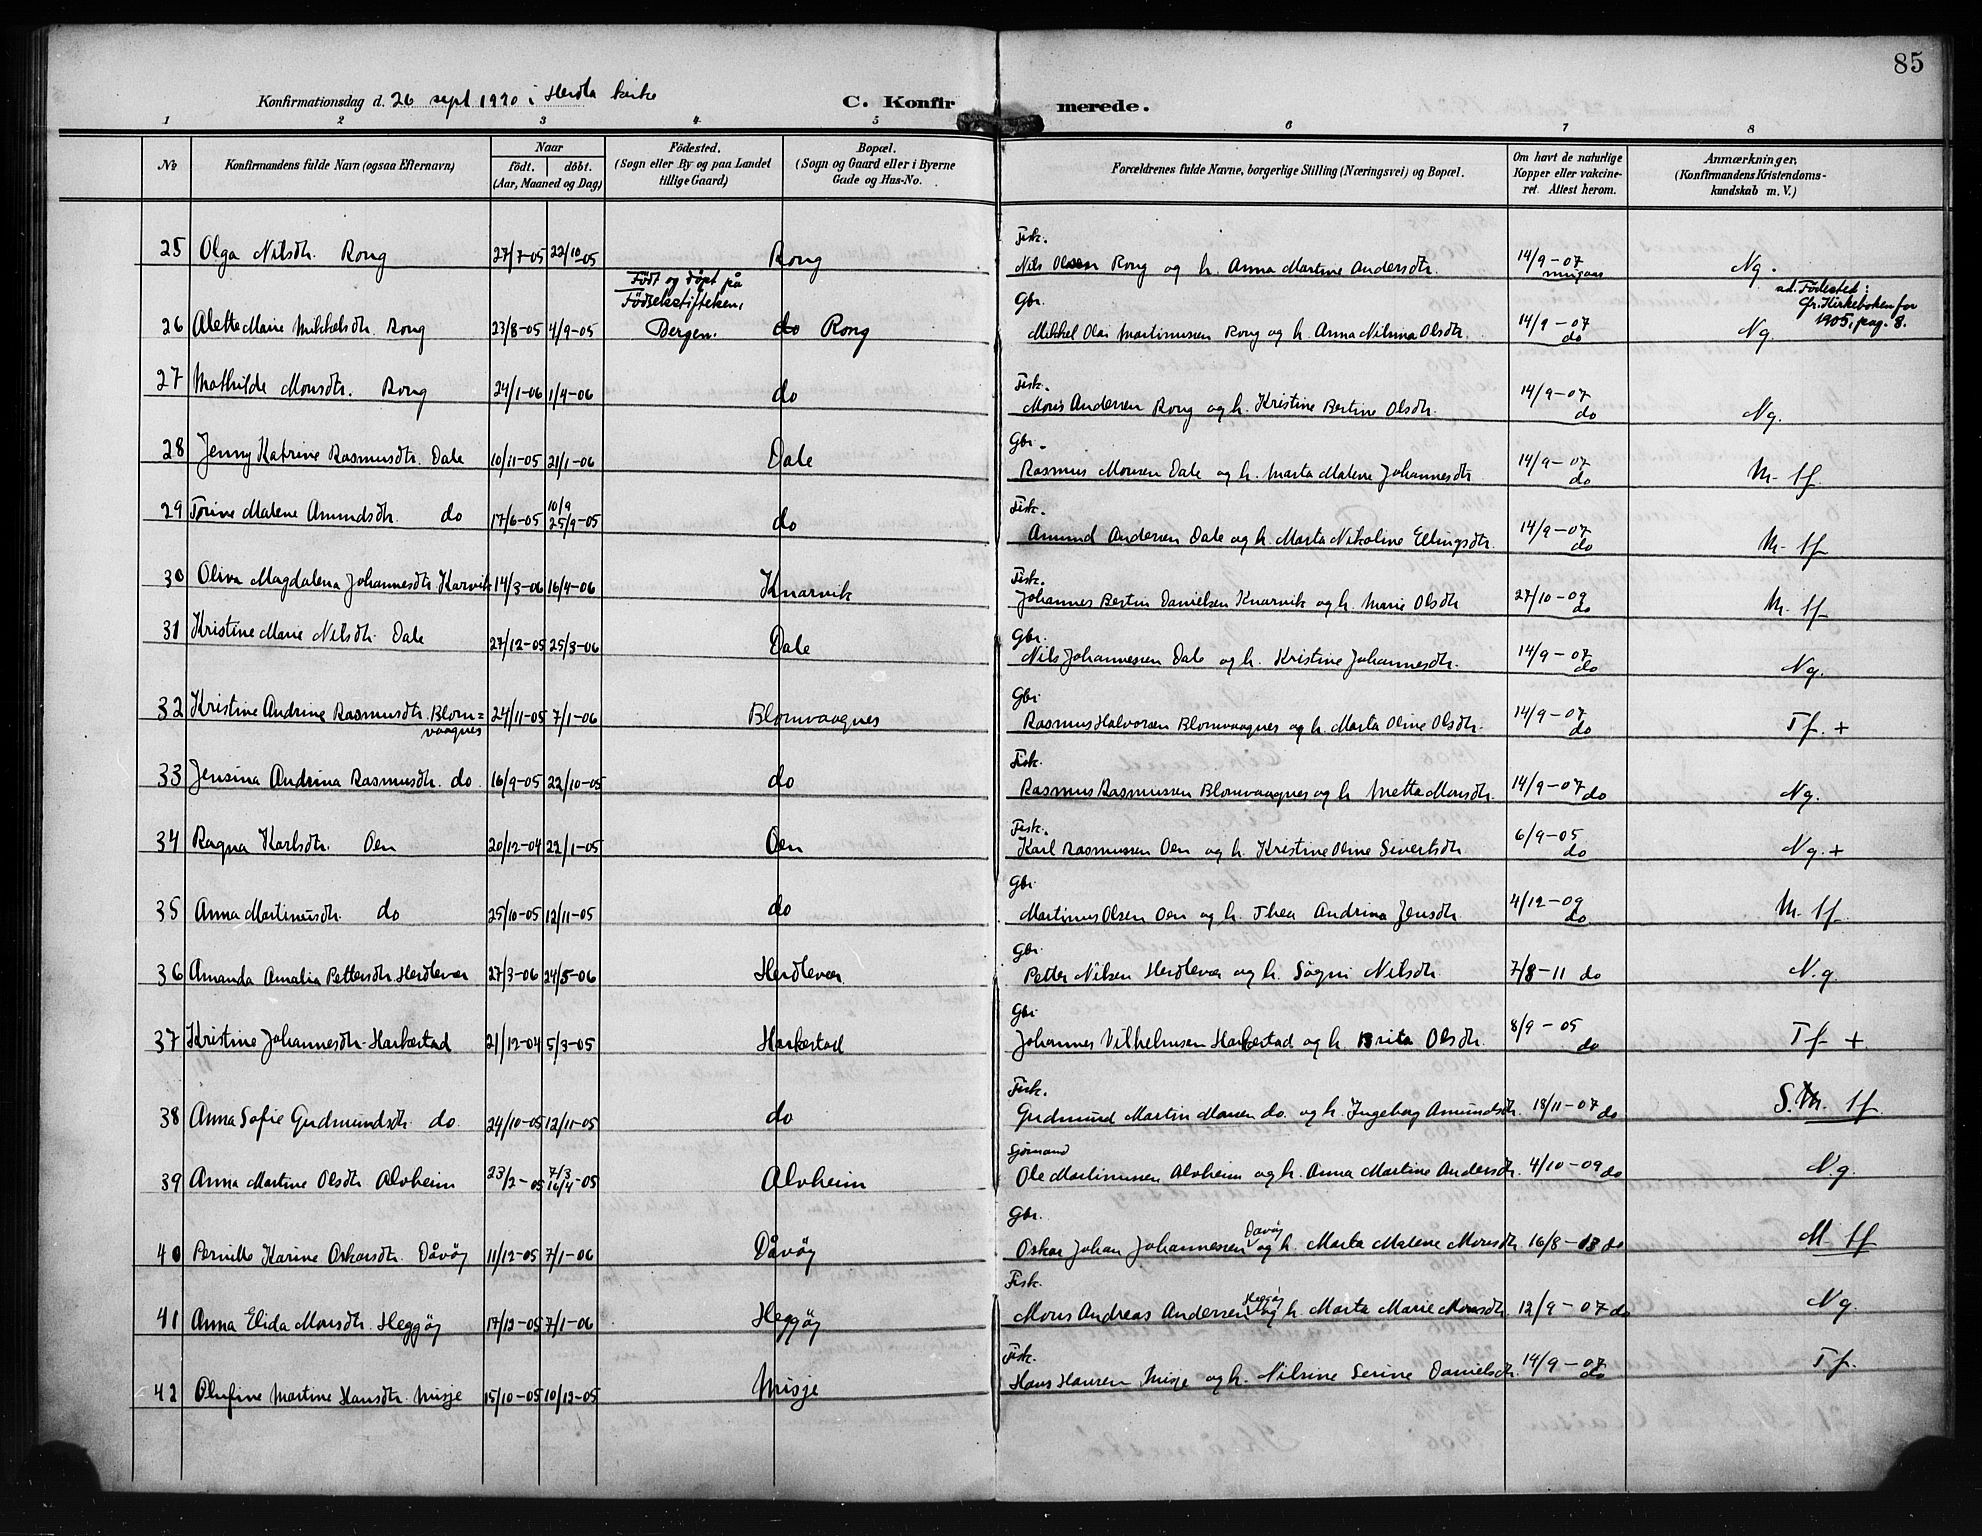 85
Konfirmationsdag d. 26 sept 1920 i Herdla kirke
C. Konfirmerede.
1 2 3 4 5 6 7 8
No Konfirmandens fulde Navn (ogsaa Efternavn) Naar født. døbt. (Aar, Maaned og Dag) Fødested. (Sogn eller By og paa Landet tillige Gaard) Bopæl. (Sogn og Gaard eller i Byerne Gade og Hus-No. Forældrenes fulde Navne, borgerlige Stilling (Næringsvei) og Bopæl. Om havt de naturlige Kopper eller vakcineret. Attest herom. Anmærkninger, (Konfirmandens Kristendomskundskab m. V.)
25 Olga Nilsdtr. Rong 27/7-05 22/10-05 Rong Fisk. Nils Olsen Rong og h. Anna Martine Andersdtr. 14/9-07 Ng.
26 Alette Marie Mikkelsdtr. Rong 23/8-05 4/9-05 Født og døpt på Fødselsstiftelsen, Bergen. do Rong Gbr. Mikkel Olai Martinussen Rong og h. Anna Nilsina Olsdtr. 14/9-07 do Ng. ad. Fødested: Cfr. Kirkeboken for 1905, pag. 8.
27 Mathilde Monsdtr. Rong 24/1-06 1/4-06 do Fisk. Mons Andersen Rong og h. Kristine Bertine Olsdtr. 14/9-07 do Ng.
28 Jenny Katrine Rasmusdtr. Dale 10/11-05 21/1-06 Dale Gbr. Rasmus Monsen Dale og h. Marta Malene Johannesdtr 14/9-07 do M. tf.
29 Torine Malene Amundsdtr. do 17/6-05 10/9 25/9-05 do Fisk. Amund Andersen Dale og h. Marta Nikoline Ellingsdtr. 14/9-07 do M. tf
30 Oliva Magdalena Johannesdtr Karvik 14/3-06 16/4-06 Knarvik Fisk. Johannes Bertin Danielsen Knarvik og h. Marie Olsdtr 27/10-09 do M. tf
31 Kristine Marie Nilsdtr. Dale 27/12-05 25/3-06 Dale Gbr. Nils Johannessen Dale og h. Kristine Johannesdtr. 14/9-07 do Ng.
32 Kristine Andrine Rasmusdtr. Blom=vaagnes 24/11-05 7/1-06 Blomvaagnes Gbr. Rasmus Halvorsen Blomvaagnes og h. Marta Oline Olsdtr. 14/9-07 do Tf. +
33 Jensina Andrina Rasmusdtr. do 16/9-05 22/10-05 do Fisk. Rasmus Rasmussen Blomvaagnes og h. Metta Monsdtr. 14/9-07 do Ng.
34 Ragna Karlsdtr. Oen 20/12-04 22/1-05 Oen Fisk. Karl Rasmussen Oen og h. Kristine Oline Sivertsdtr 6/9-05 do Ng. +
35 Anna Martinusdtr. do 25/10-05 12/11-05 do Gbr. Martinus Olsen Oen og h. Thea Andrina Jensdtr. 4/12-09 do M. tf
36 Amanda Amalia Pettersdtr. Herdlevær 27/3-06 24/5-06 Herdlevær Gbr. Petter Nilsen Herdlevær og h. Søgni Nilsdtr. 7/8-11 do N.g.
37 Kristine Johannesdtr Harkestad 21/12-04 5/3-05 Harkestad Gbr. Johannes Vilhelmsen Harkestad og h. Brita Olsdtr. 8/9-05 do Tf +
38 Anna Sofie Gudmundsdtr do. 24/10-05 12/11-05 do Fisk. Gudmund Martin Monsen do. og h. Ingeborg Amundsdtr. 18/11-07 do S. M. tf.
39 Anna Martine Olsdtr Alvheim 23/2-05 7/3 16/4-05 Alvheim Sjømand Ole Martinussen Alvheim og h. Anna Martine Andersdtr. 4/10-09 do N.g.
40 Pernille Karine Oskarsdtr. Dåvøy 11/12-05 7/1-06 Dåvøy Gbr. Oskar Johan Johannessen Davøy og h. Marta Malene Monsdtr 16/8-13 do M tf
41 Anna Elida Monsdtr. Heggøy 17/12-05 7/1-06 Heggøy Fisk. Mons Andreas Andersen Heggøy og h. Marta Marie Monsdtr 12/9-07 do Ng.
42 Olufine Martine Hansdtr. Misje 15/10-05 10/12-05 Misje Fisk. Hans Hansen Misje og h. Nilsine Serine Danielsdtr. 14/9-07 do T.f.